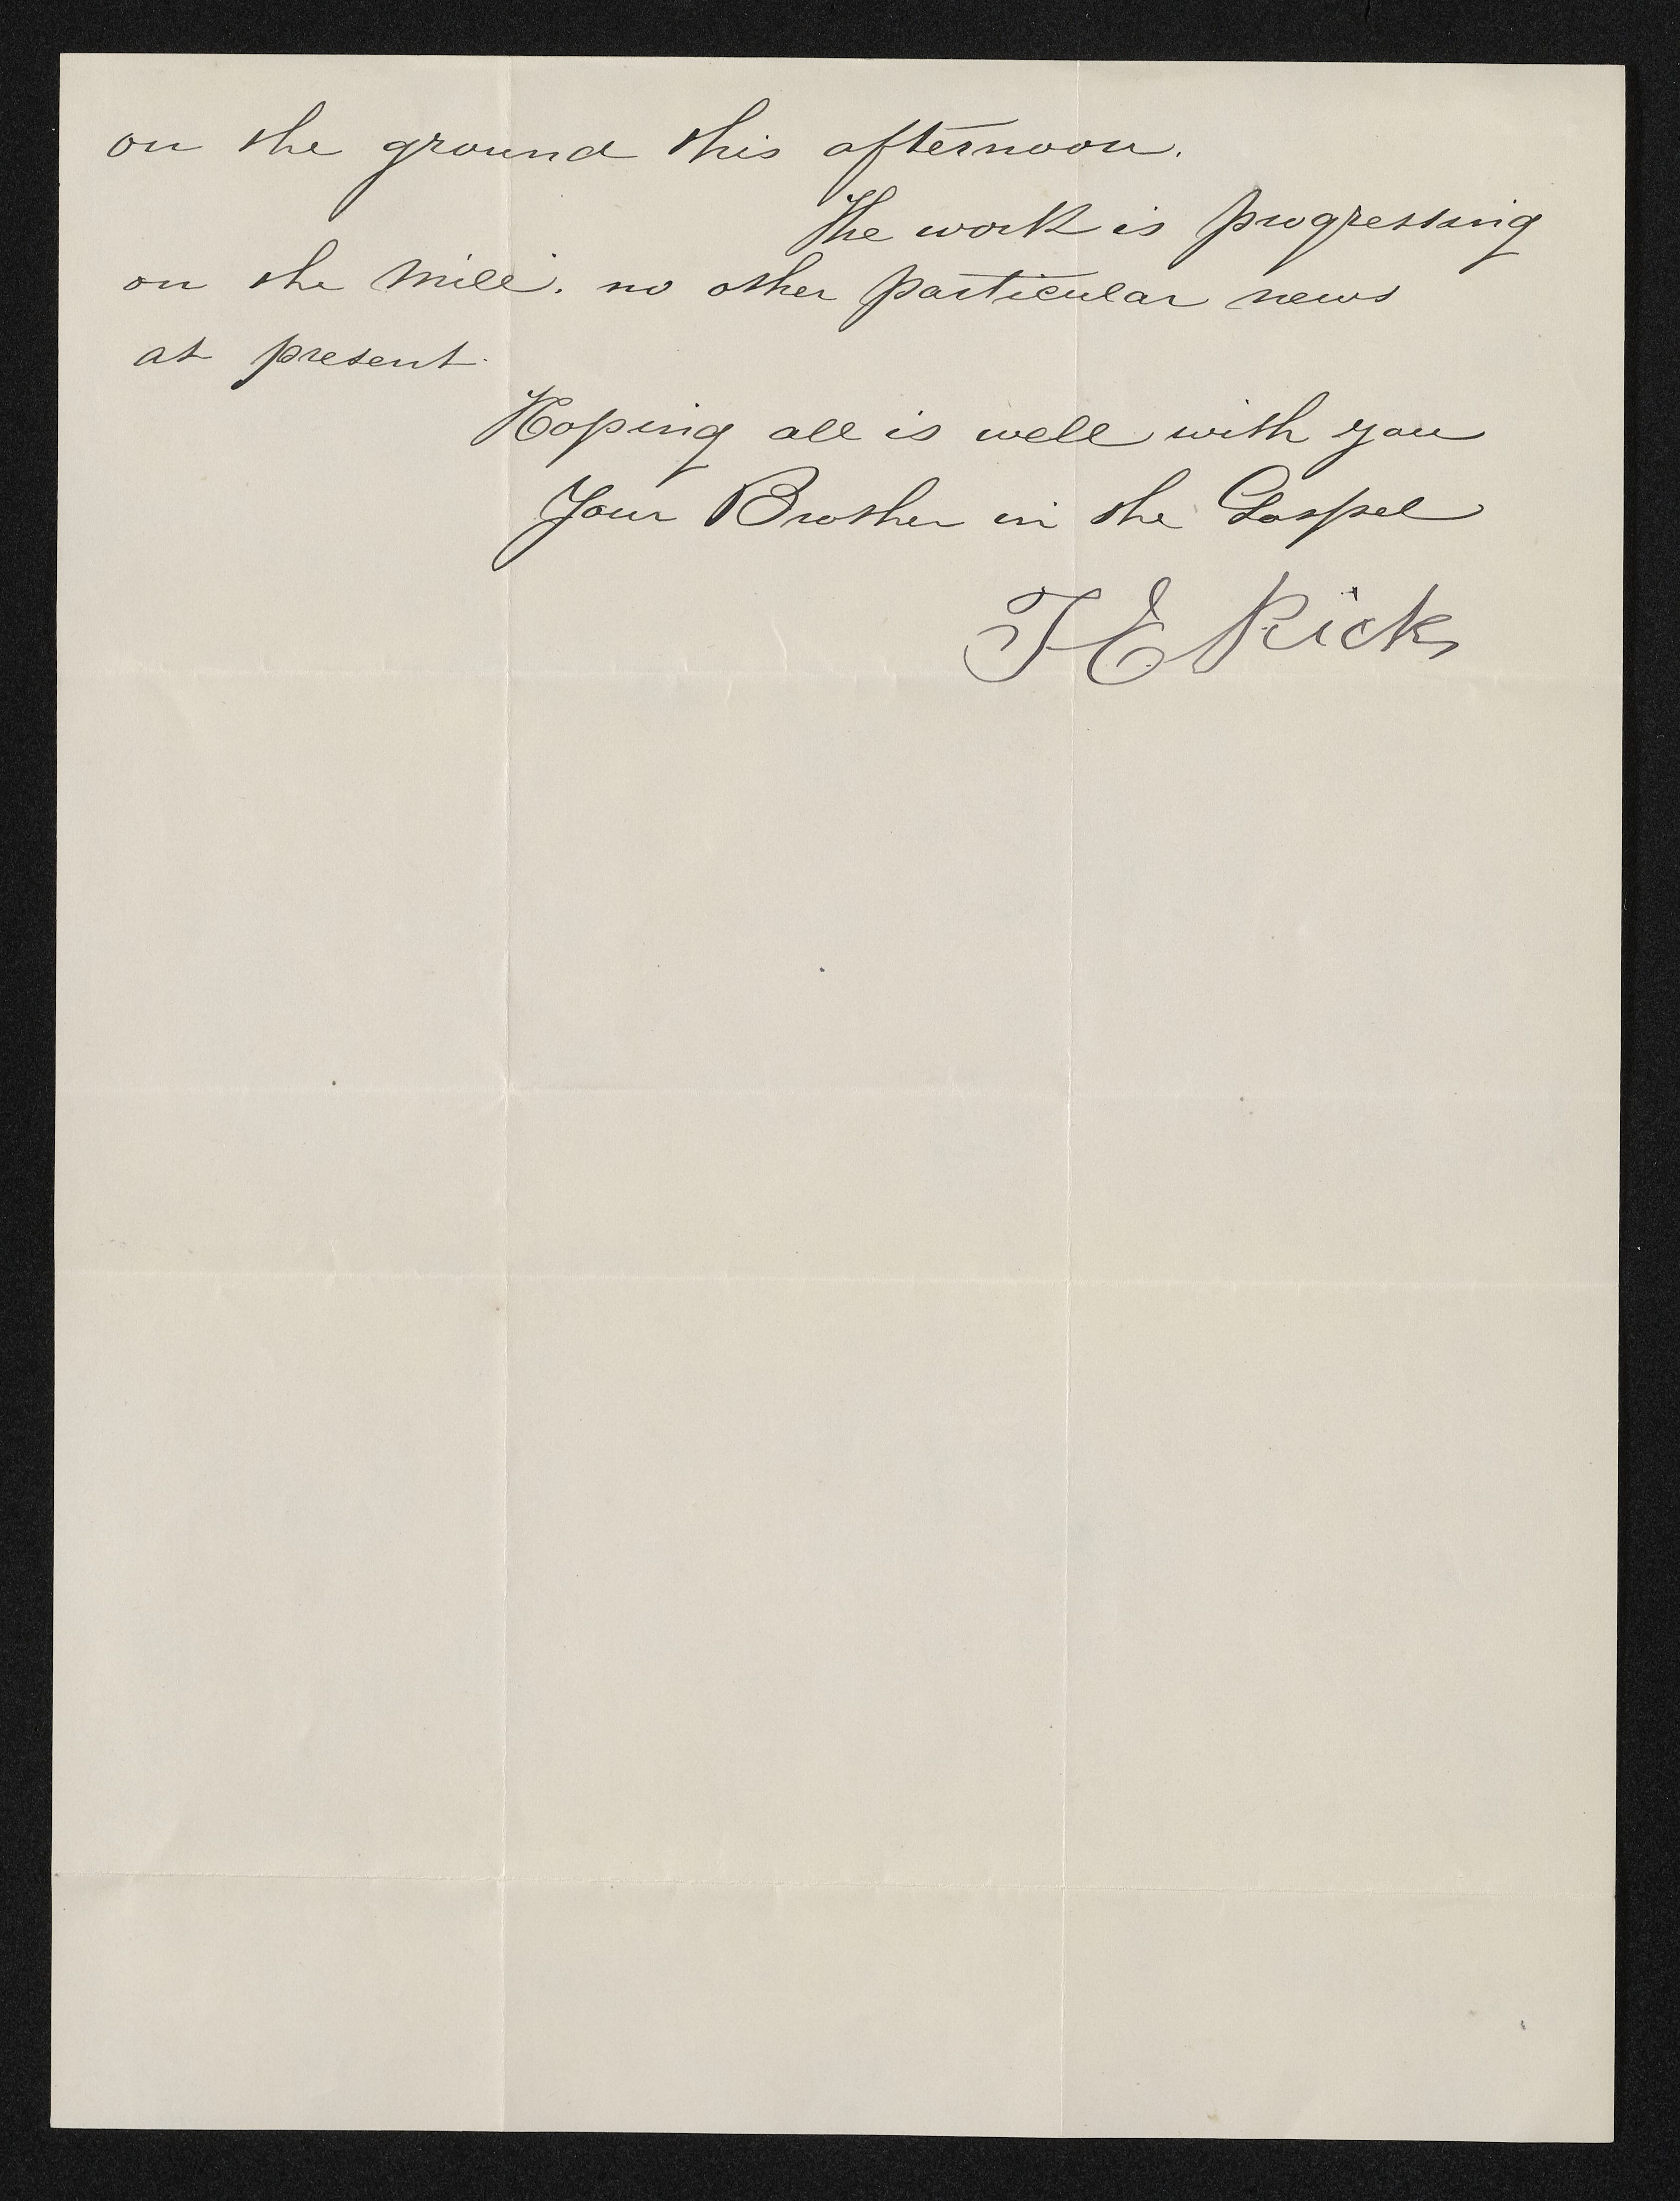 on the ground this afternoon.
The work is progressing
on the Mill. no other particular news
at present.
Hoping all is well with you
Your Brother in the Gospel
T E Ricks